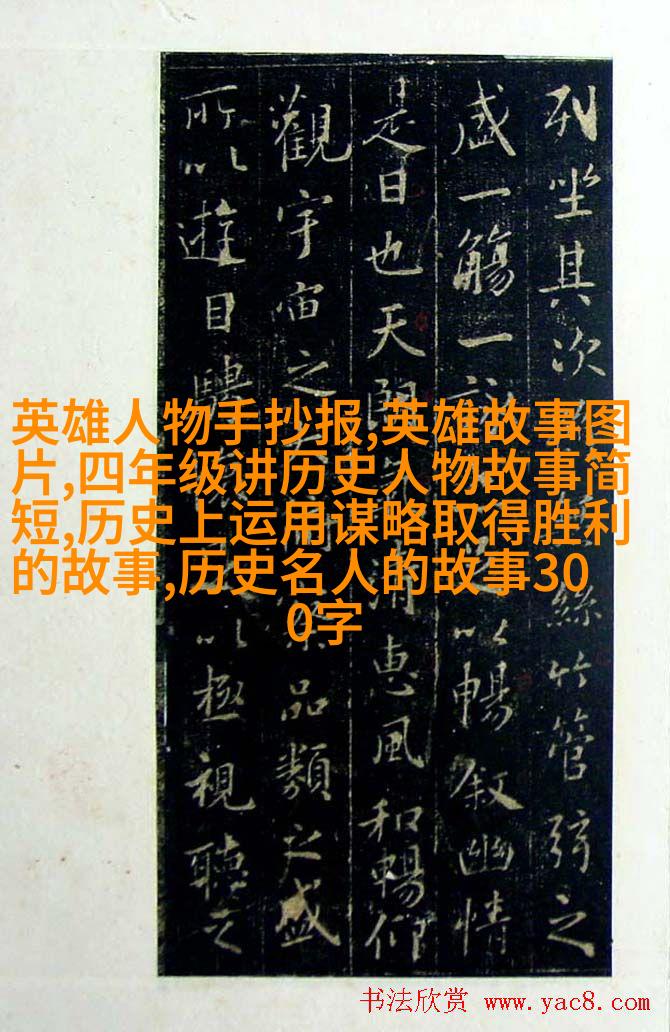 列坐其次絲竹管弦之
盛一觴一詠以暢叙幽情
是日也天朗清惠風和暢仰
觀宇宙之品類之盛
所以遊目騁以極視聽之
英雄人物手抄报,英雄故事图
片,四年级讲历史人物故事简
短,历史上运用谋略取得胜利
的故事,历史名人的故事30
0字
书法欣赏 www.yac8.com